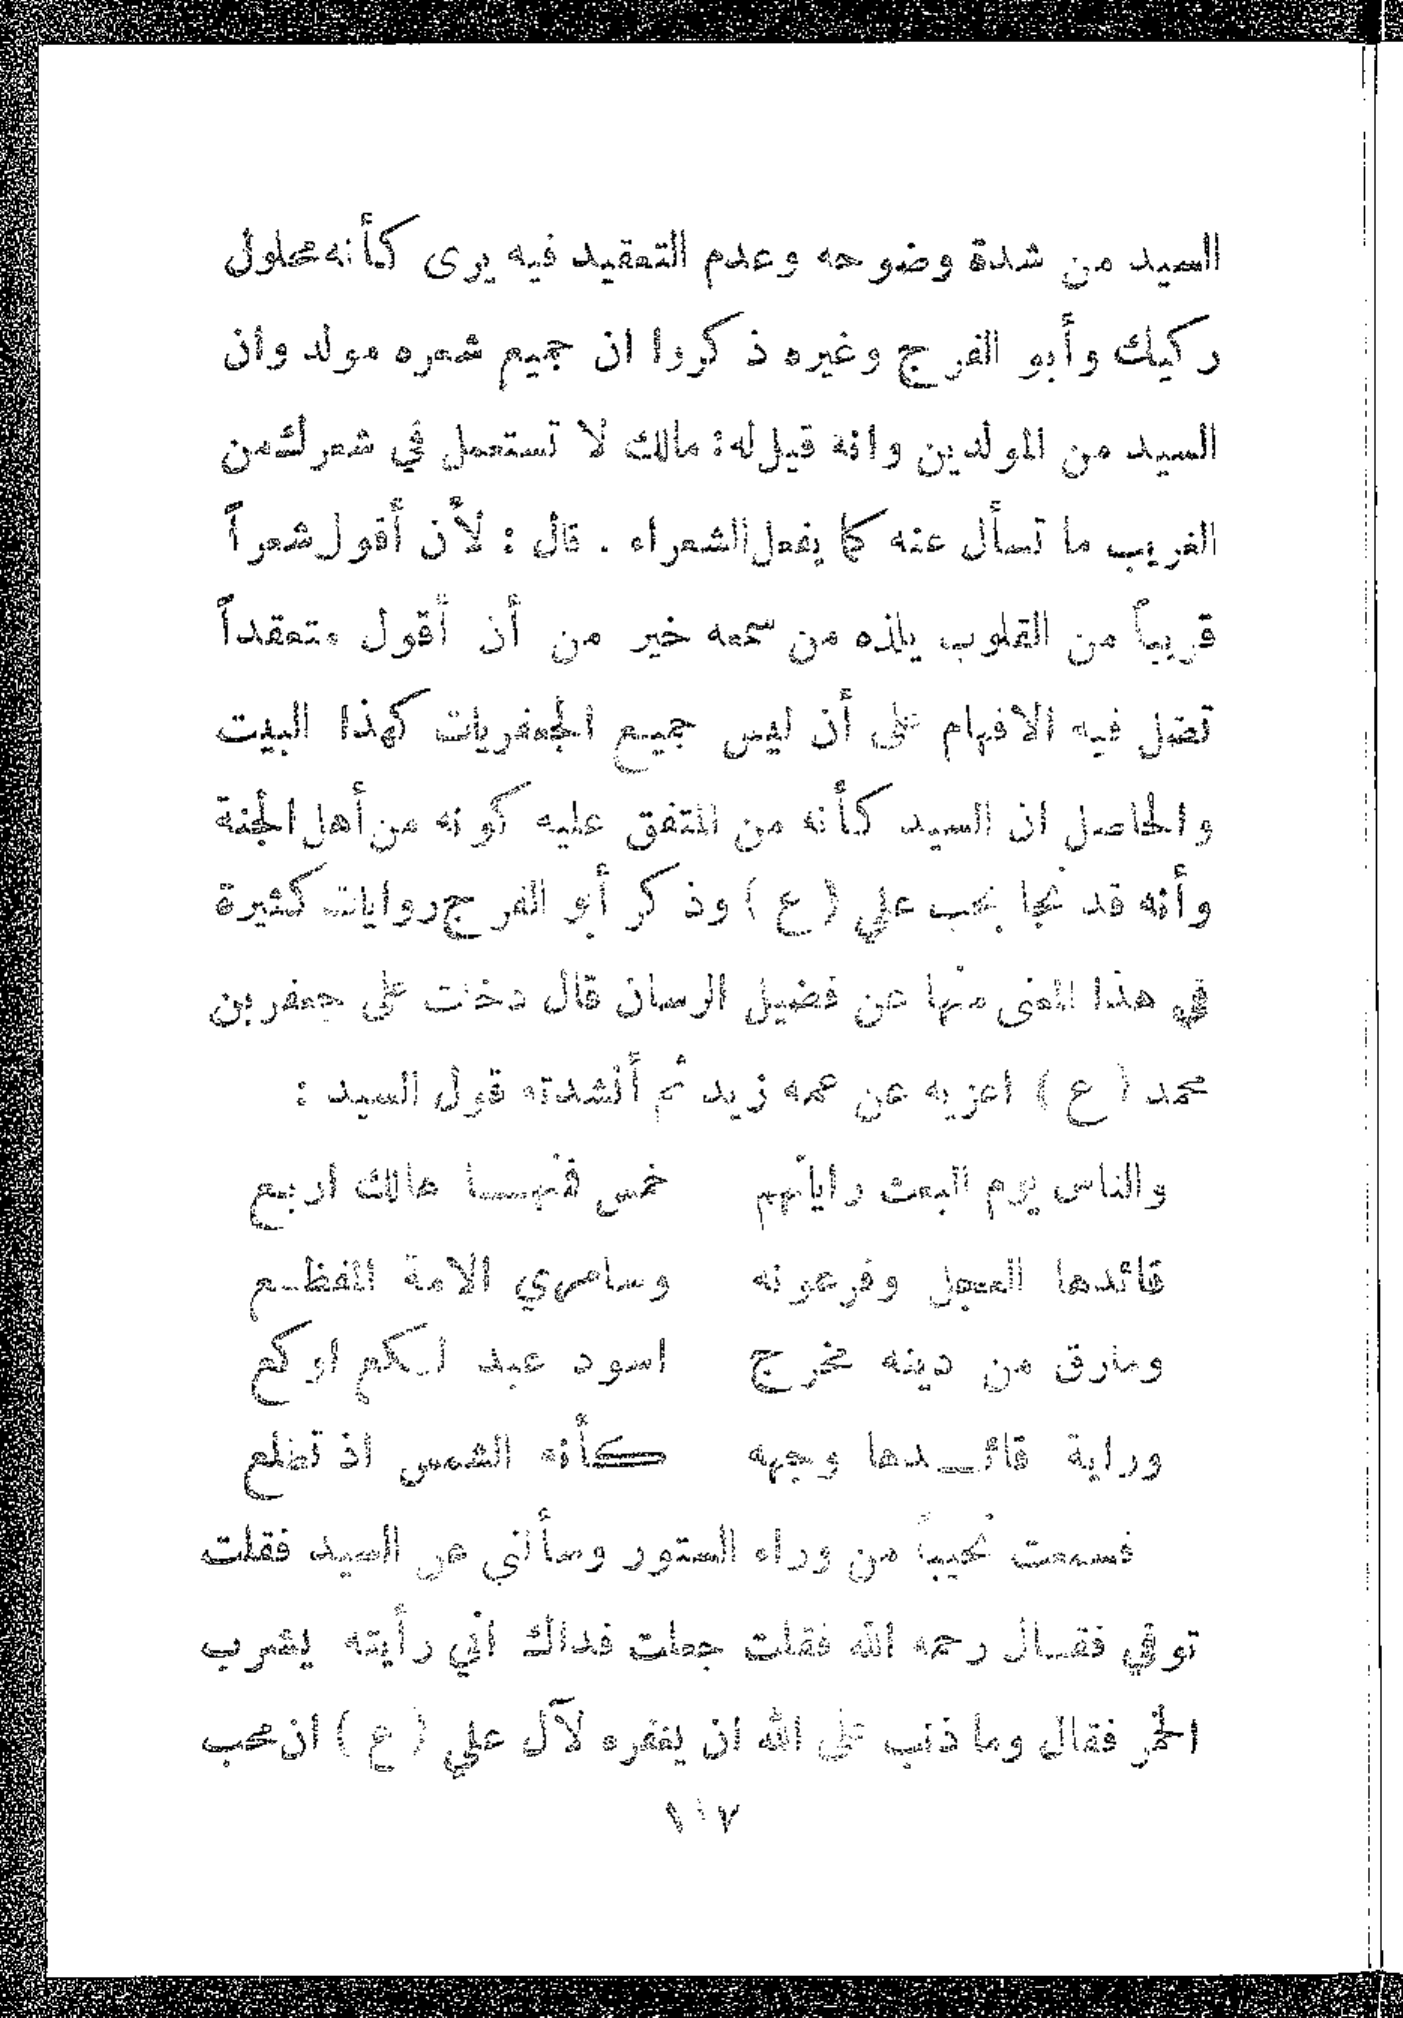 السيد من شدة وضوحه وعدم التعقيد فيه يرى كأنه محلول
ركيك وأبو الفرج وغيره ذكروا ان جميع شعره مولد وان
السيد من المولدين وانه قيل له : مالك لا تستعمل في شعرك من
الغريب ما تسأل عنه كما يفعل الشعراء . قال : لأن أقول شعراً
قريباً من القلوب يلذه من سمعه خير من أن أقول متعقداً
تضل فيه الافهام على أن ليس جميع الجعفريات كهذا البيت
والحاصل ان السيد كأنه من المتفق عليه كونه من أهل الجنة
وأنه قد نجا بحب علي ( ع ) وذكر أبو الفرج روايات كثيرة
في هذا المعنى منها عن فضيل الرسان قال دخلت على جعفر بن
محمد ( ع ) اعزيه عن عمه زيد ثم أنشدته قول السيد :
والناس يوم البعث راياتهم خمس فمنهـا هالك اربع
قائدها العجل وفرعونه وسامري الامة المفظـع
ومارق من دينه مخرج اسود عبد لـكع اوكع
وراية قائـدها وجهه كأنه الشمس اذ تطلع
فسمعت نحيباً من وراء الستور وسألني عن السيد فقلت
توفي فقـال رحمه الله فقلت جعلت فداك اني رأيته يشرب
الخمر فقال وما ذنب على الله ان يغفره لآل علي ( ع ) ان محب